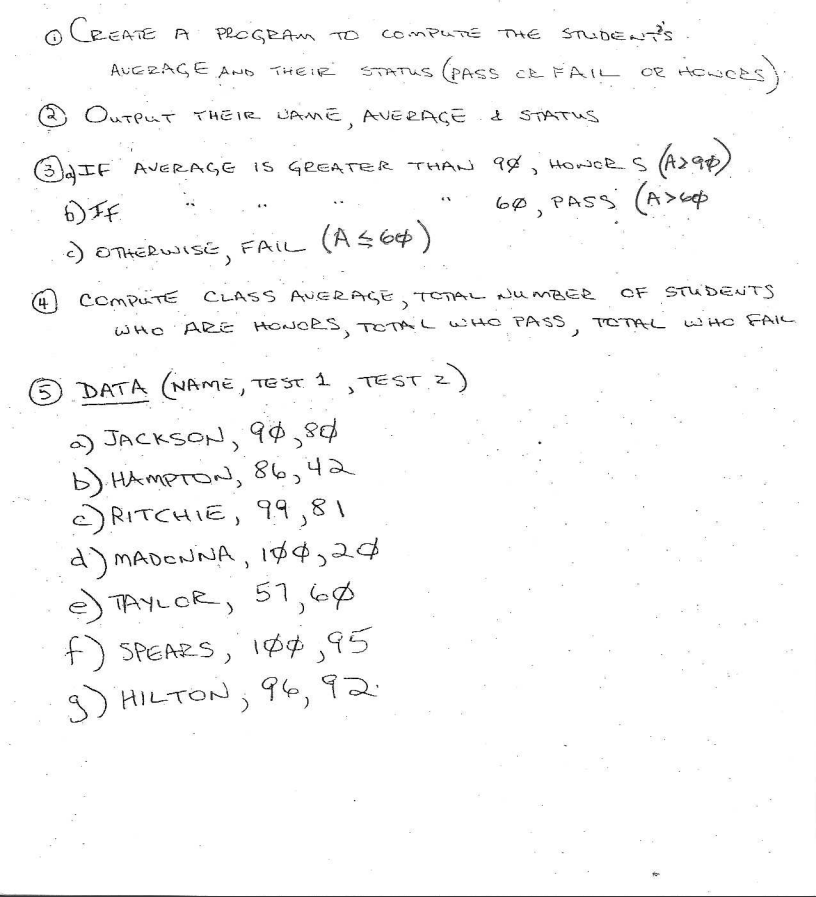 ① CREATE A PROGRAM TO COMPUTE THE STUDENT'S
AVERAGE AND THEIR STATUS (PASS OR FAIL OR HONORS).
② OUTPUT THEIR NAME, AVERAGE & STATUS
③ a) IF AVERAGE IS GREATER THAN 90, HONORS (A>90)
b) IF " " " " 60, PASS (A>60
c) OTHERWISE, FAIL (A≤60)
④ COMPUTE CLASS AVERAGE, TOTAL NUMBER OF STUDENTS
WHO ARE HONORS, TOTAL WHO PASS, TOTAL WHO FAIL
⑤ DATA (NAME, TEST 1, TEST 2)
a) JACKSON, 90, 80
b) HAMPTON, 86, 42
c) RITCHIE, 99, 81
d) MADONNA, 100, 20
e) TAYLOR, 57, 60
f) SPEARS, 100, 95
g) HILTON, 96, 92